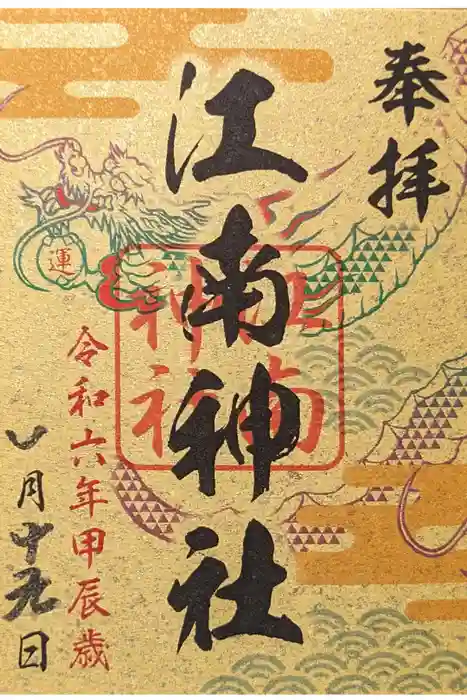 奉拝
江南神社
江南
神社
運
令和六年甲辰歳
月十日